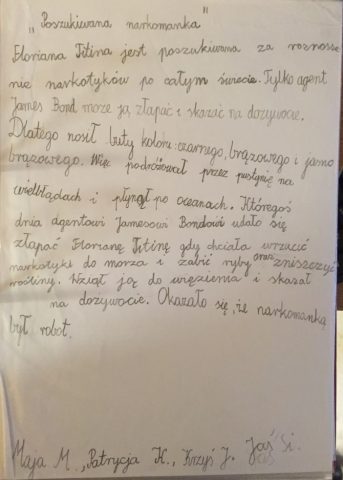 "Poszukiwana narkomanka"
Floriana Titina jest poszukiwana za roznosze
nie narkotyków po całym świecie. Tylko agent
James Bond może ją złapać i skazić na dożywocie.
Dlatego nosił buty koloru: czarnego, brązowego i jasno
brązowego. Więc podróżował przez pustynię na
wielbłądach i płynął po oceanach. Któregoś
dnia agentowi Jamesowi Bondowi udało się
złapać Florianę Titinę gdy chciała wrzucić
narkotyki do morza i zabić ryby oraz zniszczyć
rośliny. Wziął ją do więzienia i skazał
na dożywocie. Okazało się, że narkomanką
był robot.
Maja M., Patrycja K., Krzyś J. Jaś Si.